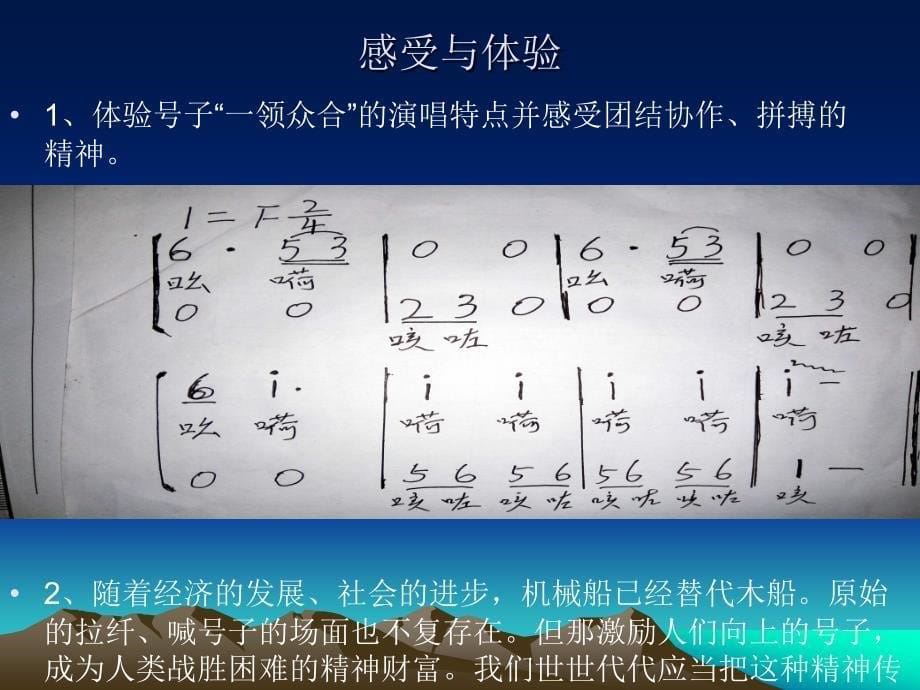 感受与体验
• 1、体验号子“一领众合”的演唱特点并感受团结协作、拼搏的
精神。
1=F 2/4
6 · 5 3 | 0 0 | 6 · 5 3 | 0 0
吆 嗬 吆 嗬
0 0 | 2 3 0 | 0 0 | 2 3 0
咳 咗 咳 咗
6 i · | i i | i i | i –
吆 嗬 嗬 嗬 嗬 嗬 嗬
0 0 | 5 6 5 6 | 5 6 5 6 | 1 —
咳 咗 咳 咗 咳 咗 咳 咗 咳
• 2、随着经济的发展、社会的进步，机械船已经替代木船。原始
的拉纤、喊号子的场面也不复存在。但那激励人们向上的号子，
成为人类战胜困难的精神财富。我们世世代代应当把这种精神传